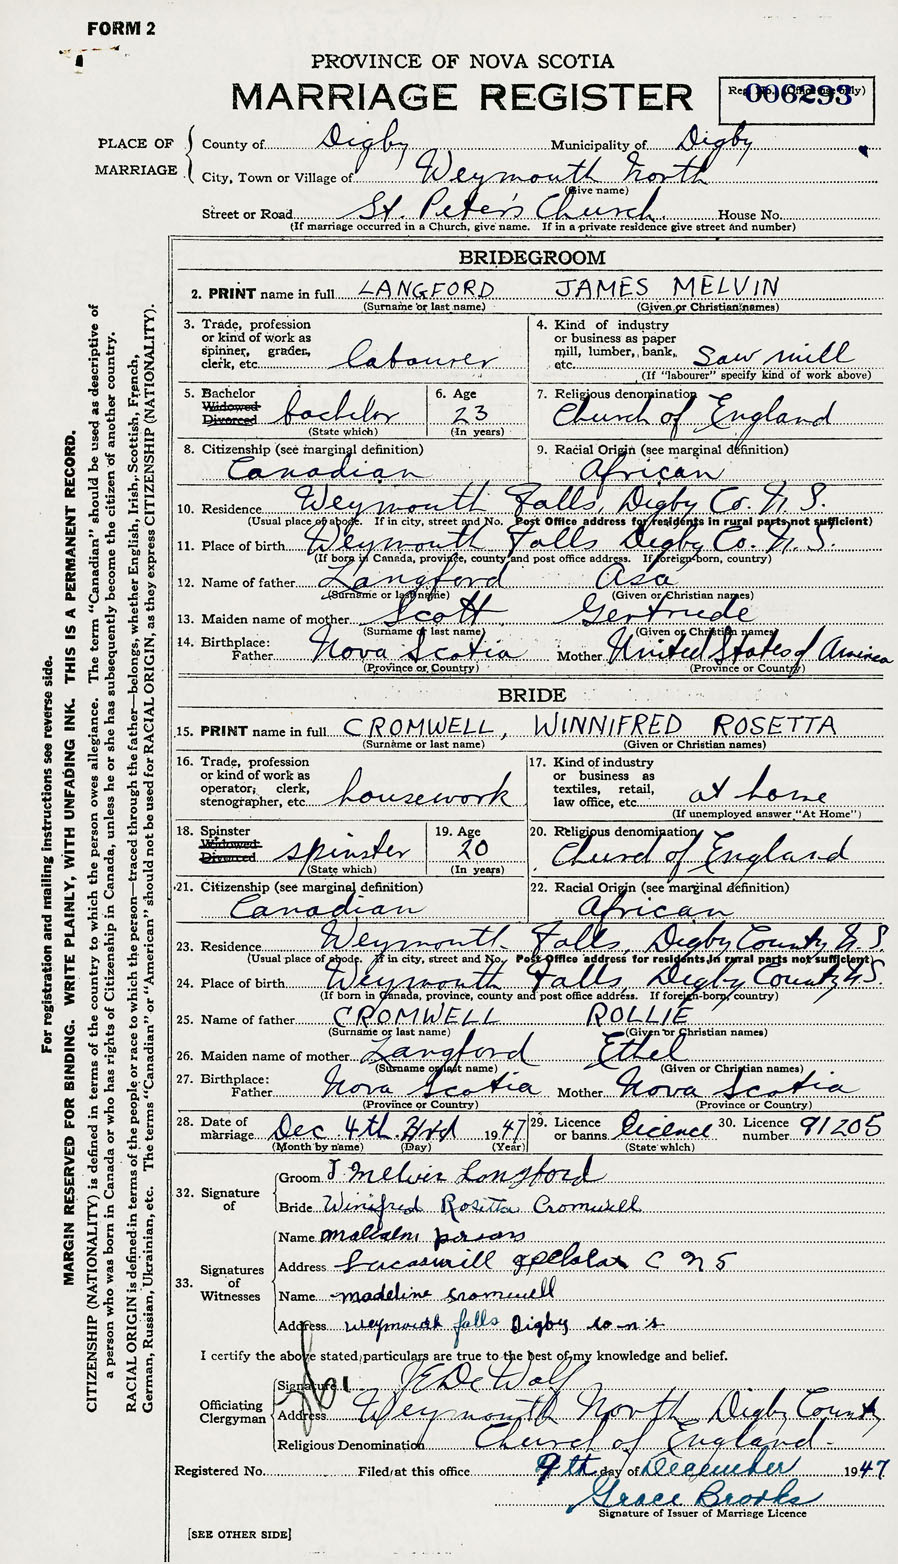 FORM 2
PROVINCE OF NOVA SCOTIA
MARRIAGE REGISTER
Reg. No. (Office use only)
006293
PLACE OF MARRIAGE
County of Digby Municipality of Digby
City, Town or Village of Weymouth North
(Give name)
Street or Road St. Peter's Church. House No.
(If marriage occurred in a Church, give name. If in a private residence give street and number)
BRIDEGROOM
2. PRINT name in full LANGFORD JAMES MELVIN
(Surname or last name) (Given or Christian names)
3. Trade, profession or kind of work as spinner, grader, clerk, etc. labourer
4. Kind of industry or business as paper mill, lumber, bank, etc. Saw mill
(If "labourer" specify kind of work above)
5. Bachelor Widowed Divorced bachelor
(State which)
6. Age 23
(In years)
7. Religious denomination Church of England
8. Citizenship (see marginal definition) Canadian
9. Racial Origin (see marginal definition) African
10. Residence Weymouth Falls, Digby Co. N. S.
(Usual place of abode. If in city, street and No. Post Office address for residents in rural parts not sufficient)
11. Place of birth Weymouth Falls Digby Co. N. S.
(If born in Canada, province, county and post office address. If foreign-born, country)
12. Name of father Langford Asa
(Surname or last name) (Given or Christian names)
13. Maiden name of mother Scott Gertrude
(Surname of last name) (Given or Christian names)
14. Birthplace: Father Nova Scotia Mother United States of America
(Province or Country) (Province or Country)
BRIDE
15. PRINT name in full CROMWELL, WINNIFRED ROSETTA
(Surname or last name) (Given or Christian names)
16. Trade, profession or kind of work as operator, clerk, stenographer, etc. housework
17. Kind of industry or business as textiles, retail, law office, etc. at home
(If unemployed answer "At Home")
18. Spinster Widowed Divorced spinster
(State which)
19. Age 20
(In years)
20. Religious denomination Church of England
21. Citizenship (see marginal definition) Canadian
22. Racial Origin (see marginal definition) African
23. Residence Weymouth Falls, Digby County N.S.
(Usual place of abode. If in city, street and No. Post Office address for residents in rural parts not sufficient)
24. Place of birth Weymouth Falls, Digby County N.S.
(If born in Canada, province, county and post office address. If foreign-born, country)
25. Name of father CROMWELL ROLLIE
(Surname or last name) (Given or Christian names)
26. Maiden name of mother Langford Ethel
(Surname or last name) (Given or Christian names)
27. Birthplace: Father Nova Scotia Mother Nova Scotia
(Province or Country) (Province or Country)
28. Date of marriage Dec 4th 1947
(Month by name) (Day) (Year)
29. Licence or banns. licence
(State which)
30. Licence number 91205
32. Signature of
Groom J Melvin Langford
Bride Winifred Rosetta Cromwell
33. Signatures of Witnesses
Name malcolm persons
Address
Name madeline cromwell
Address weymouth falls Digby co n s
I certify the above stated particulars are true to the best of my knowledge and belief.
Officiating Clergyman
Signature J E De Wolf
Address Weymouth North Digby County
Religious Denomination Church of England.
Registered No. Filed at this office 9th day of December 1947
Grace Brooks
Signature of Issuer of Marriage Licence
[SEE OTHER SIDE]
For registration and mailing instructions see reverse side.
MARGIN RESERVED FOR BINDING. WRITE PLAINLY, WITH UNFADING INK. THIS IS A PERMANENT RECORD.
CITIZENSHIP (NATIONALITY) is defined in terms of the country to which the person owes allegiance. The term "Canadian" should be used as descriptive of
a person who was born in Canada or who has rights of Citizenship in Canada, unless he or she has subsequently become the citizen of another country.
RACIAL ORIGIN is defined in terms of the people or race to which the person—traced through the father—belongs, whether English, Irish, Scottish, French,
German, Russian, Ukrainian, etc. The terms "Canadian" or "American" should not be used for RACIAL ORIGIN, as they express CITIZENSHIP (NATIONALITY).